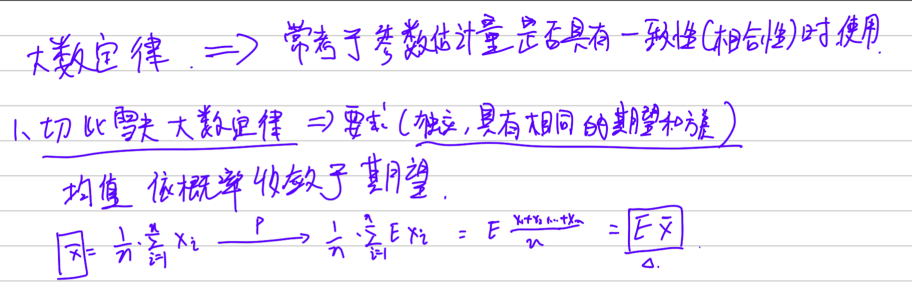 大数定律 . => 常考于参数估计量是否具有一致性(相合性)时使用.
1、切比雪夫大数定律 => 要求(独立,具有相同的期望和方差)
均值 依概率收敛于期望.
x̄ = 1/n · ∑_{i=1}^{n} x_i —P→ 1/n · ∑_{i=1}^{n} E x_i = E (x_1+x_2+...+x_n)/n = E x̄ .
Δ.